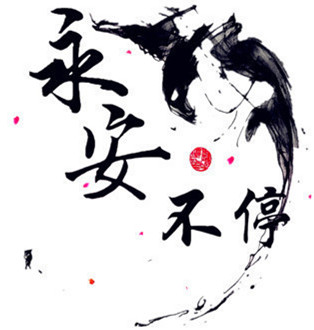 永安
不停